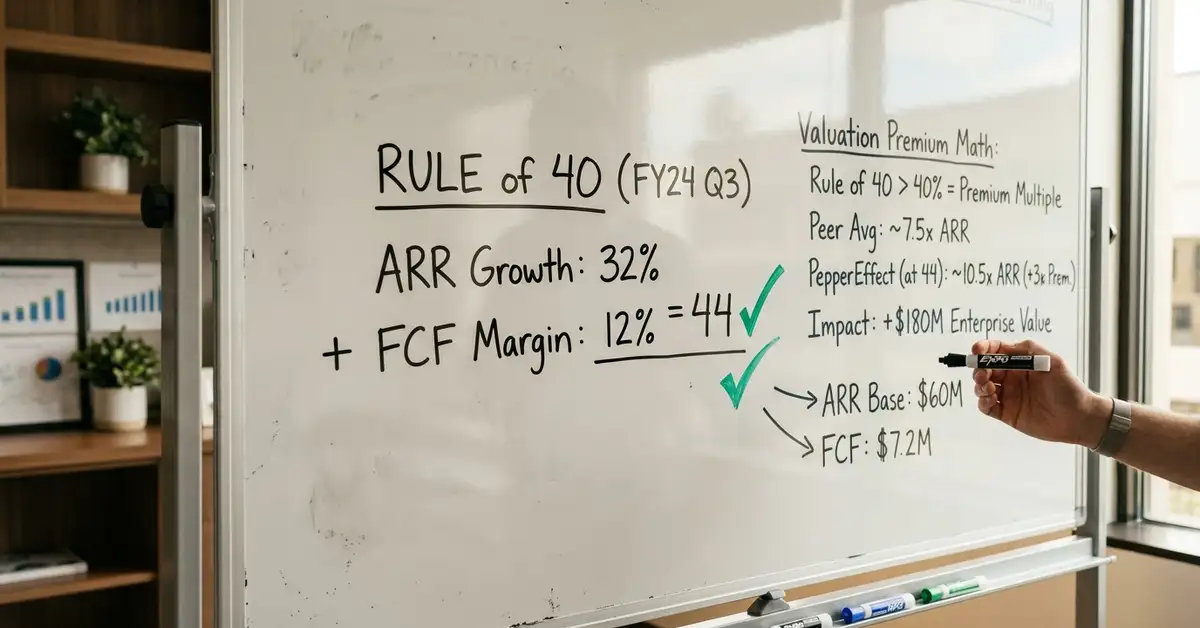 RULE of 40 (FY24 Q3)
ARR Growth: 32%
+ FCF Margin: 12% = 44 ✓
✓
Valuation Premium Math:
Rule of 40 > 40% = Premium Multiple
Peer Avg: ~7.5x ARR
PepperEffect (at 44): ~10.5x ARR (+3x Prem.)
Impact: +$180M Enterprise Value
→ ARR Base: $60M
→ FCF: $7.2M
EXPO